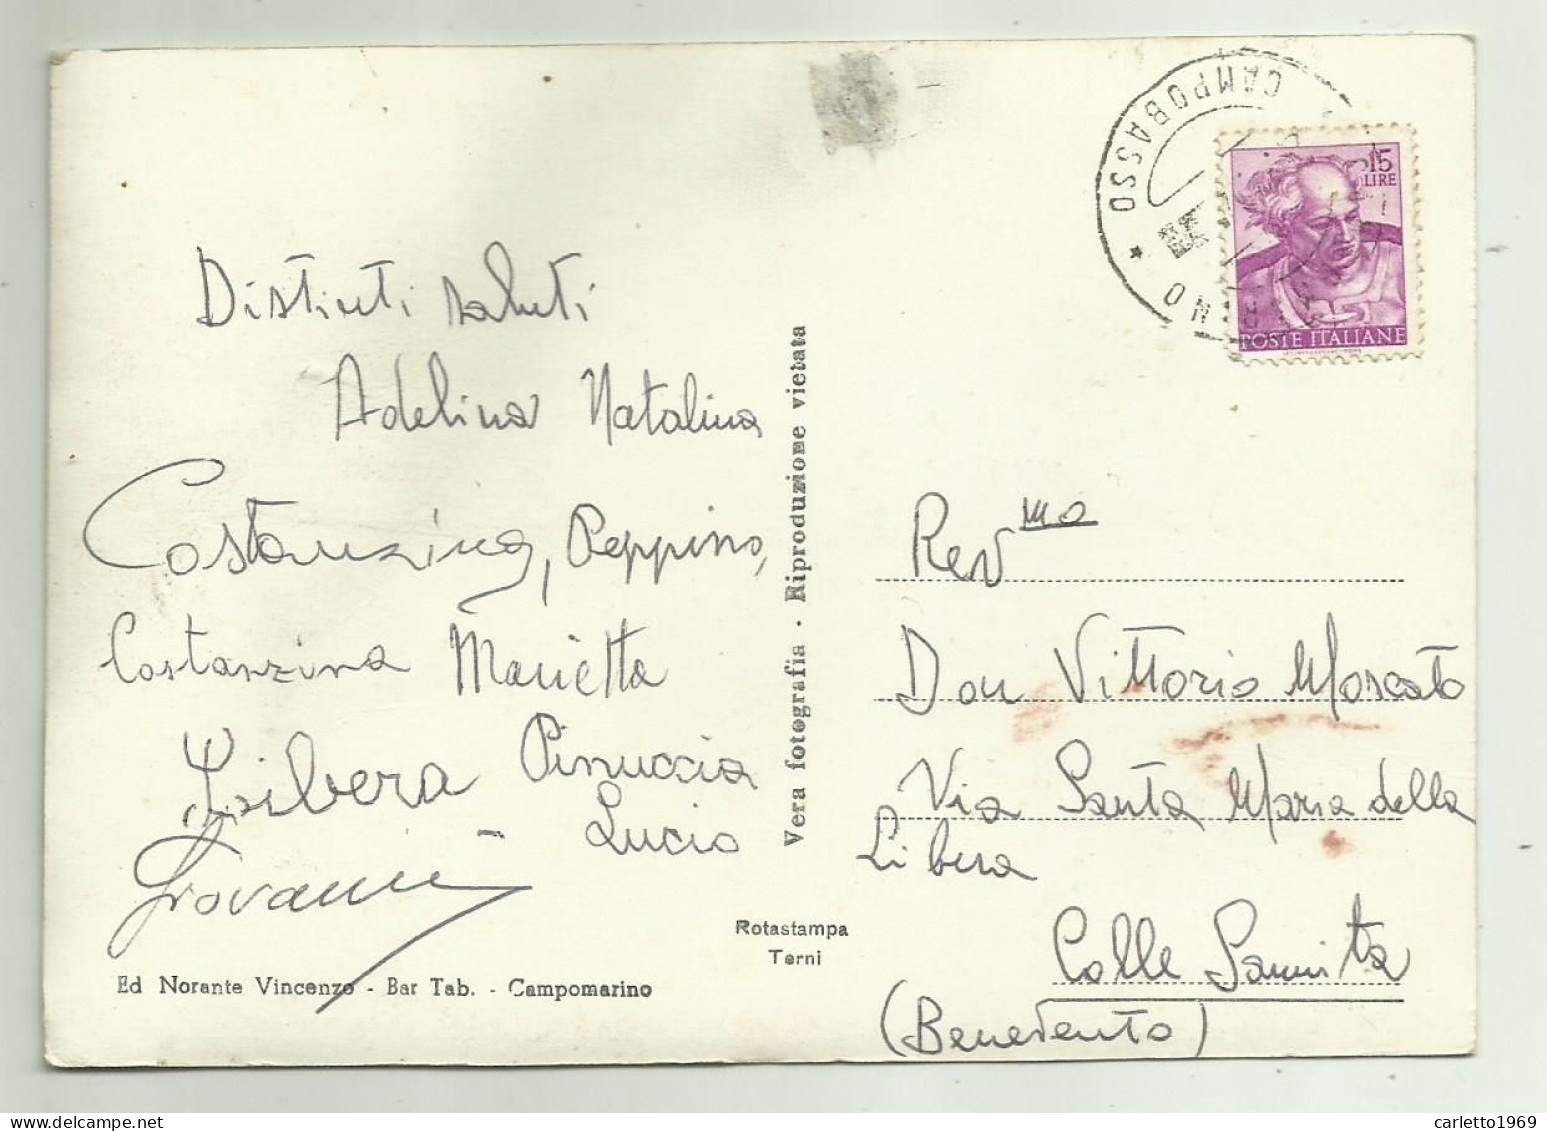 Distinti saluti
Adelina Natalina
Costanzina, Peppino,
Costanzina Marietta
Libera Pinuccia
Lucio
Giovanni
Ed Norante Vincenzo - Bar Tab. - Campomarino
Vera fotografia - Riproduzione vietata
Rotastampa
Terni
CAMPOBASSO
15
LIRE
POSTE ITALIANE
Rev mo
Don Vittorio Moscato
Via Santa Maria della
Libera
Colle Sannita
(Benevento)
carletto1969